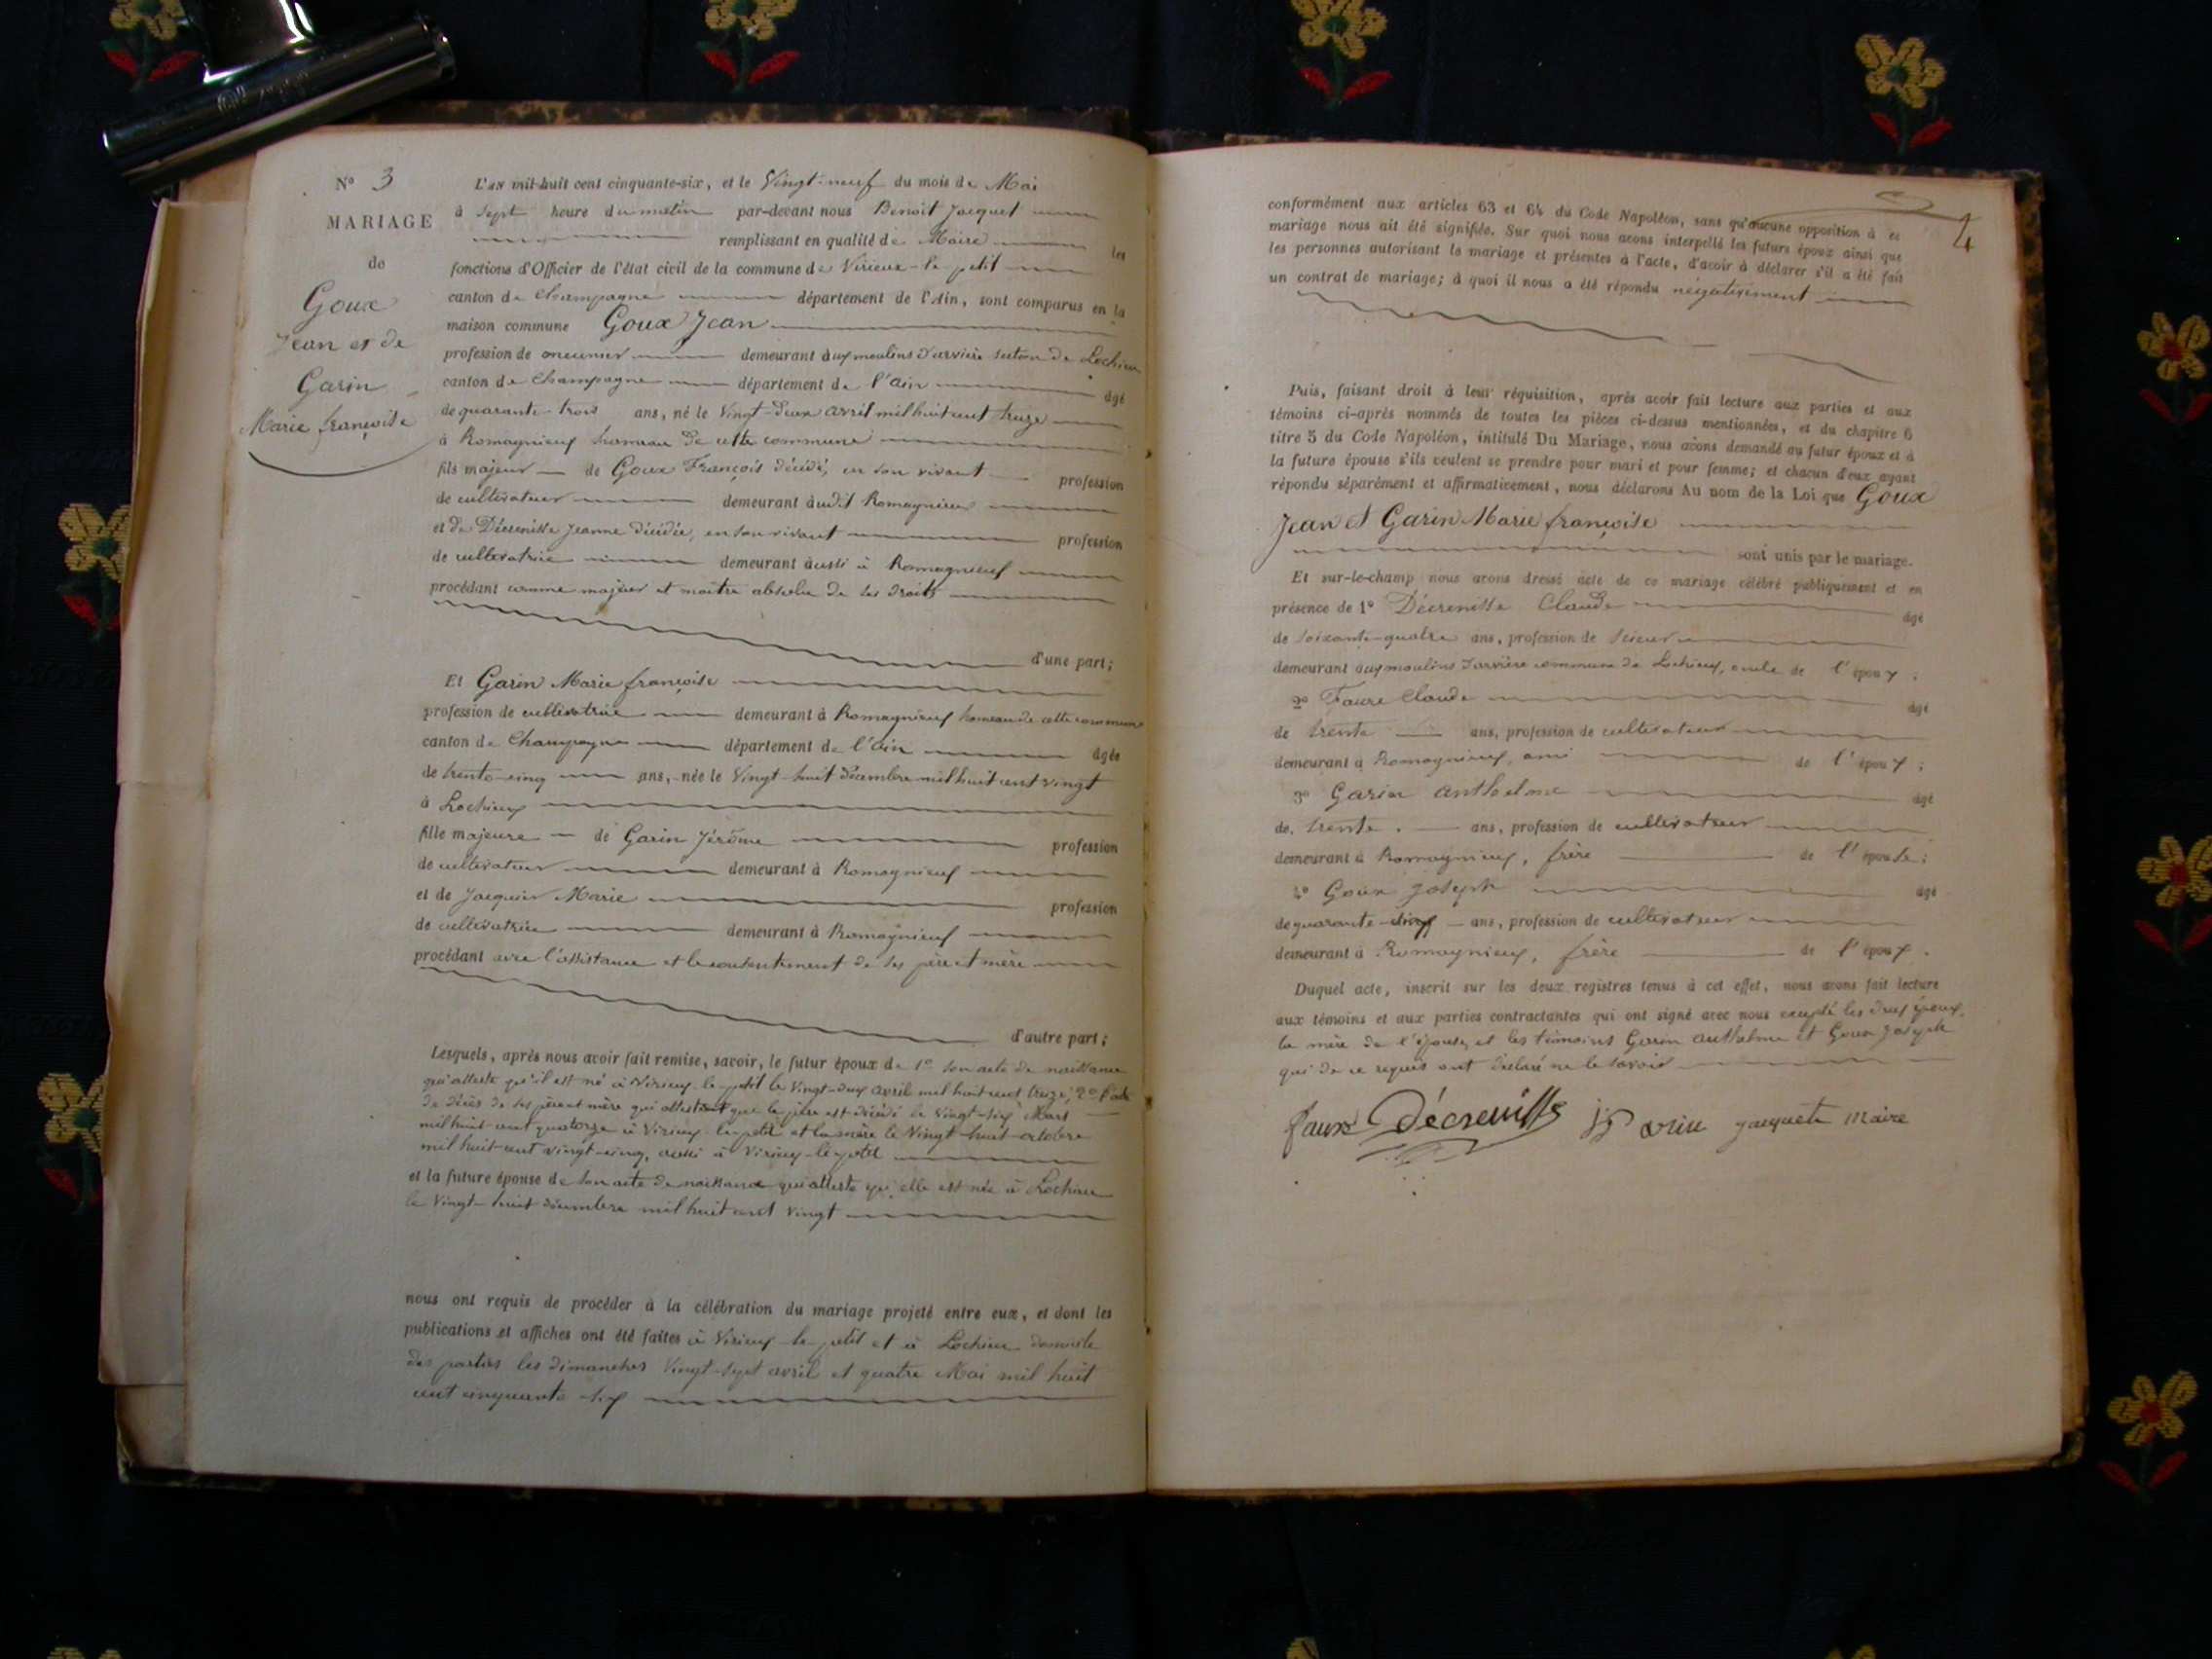 N° 3
MARIAGE
de
Goux
Jean et de
Garin
Marie françoise
L'an mil-huit cent cinquante-six, et le Vingt-neuf du mois de Mai
à Sept heure du matin par-devant nous Benoît Jacquet
remplissant en qualité de Maire les
fonctions d'Officier de l'état civil de la commune de Virieux-le-petit
canton de Champagne département de l'Ain, sont comparus en la
maison commune Goux Jean
profession de meunier demeurant aux moulins d'arvière section de Lochieu
canton de Champagne département de l'ain âgé
de quarante-trois ans, né le Vingt-deux avril mil huit cent treize
à Romagnieux hameau de cette commune
fils majeur de Goux François décédé, en son vivant profession
de cultivateur demeurant audit Romagnieux
et de Décrenisse Jeanne décédée, en son vivant profession
de cultivatrice demeurant aussi à Romagnieux
procédant comme majeur et maître absolu de ses droits
d'une part;
Et Garin Marie françoise
profession de cultivatrice demeurant à Romagnieux hameau de cette commune
canton de Champagne département de l'ain âgée
de trente-cinq ans, née le Vingt-huit décembre mil huit cent vingt
à Lochieux
fille majeure de Garin Jérôme profession
de cultivateur demeurant à Romagnieux
et de Jacquin Marie profession
de cultivatrice demeurant à Romagnieux
procédant avec l'assistance et le consentement de ses père et mère
d'autre part;
Lesquels, après nous avoir fait remise, savoir, le futur époux de 1° son acte de naissance
qui atteste qu'il est né à Virieux-le-petit le Vingt-deux avril mil huit cent treize; 2° l'acte
de décès de ses père et mère qui attestent que le père est décédé le Vingt-six Mars
mil huit cent quatorze à Virieux-le-petit et la mère le Vingt-huit octobre
mil huit cent vingt-cinq, aussi à Virieux-le-petit
et la future épouse de son acte de naissance qui atteste qu'elle est née à Lochieu
le Vingt-huit décembre mil huit cent vingt
nous ont requis de procéder à la célébration du mariage projeté entre eux, et dont les
publications et affiches ont été faites à Virieux-le-petit et à Lochieu domicile
des parties les dimanches Vingt-sept avril et quatre Mai mil huit
cent cinquante-six
4
conformément aux articles 63 et 64 du Code Napoléon, sans qu'aucune opposition à ce
mariage nous ait été signifiée. Sur quoi nous avons interpellé les futurs époux ainsi que
les personnes autorisant le mariage et présentes à l'acte, d'avoir à déclarer s'il a été fait
un contrat de mariage; à quoi il nous a été répondu négativement
Puis, faisant droit à leur réquisition, après avoir fait lecture aux parties et aux
témoins ci-après nommés de toutes les pièces ci-dessus mentionnées, et du chapitre 6
titre 5 du Code Napoléon, intitulé Du Mariage, nous avons demandé au futur époux et à
la future épouse s'ils veulent se prendre pour mari et pour femme; et chacun d'eux ayant
répondu séparément et affirmativement, nous déclarons Au nom de la Loi que Goux
Jean et Garin Marie françoise
sont unis par le mariage.
Et sur-le-champ nous avons dressé acte de ce mariage célébré publiquement et en
présence de 1° Décrenisse Claude âgé
de soixante-quatre ans, profession de scieur
demeurant aux moulins d'arvière commune de Lochieux, oncle de l'époux;
2° Faure Claude âgé
de trente ans, profession de cultivateur
demeurant à Romagnieux, ami de l'époux;
3° Garin anthelme âgé
de trente ans, profession de cultivateur
demeurant à Romagnieux, frère de l'épouse;
4° Goux Joseph âgé
de quarante ans, profession de cultivateur
demeurant à Romagnieux, frère de l'époux.
Duquel acte, inscrit sur les deux registres tenus à cet effet, nous avons fait lecture
aux témoins et aux parties contractantes qui ont signé avec nous excepté les deux époux,
la mère de l'épouse, et les témoins Garin anthelme et Goux Joseph
qui de ce requis ont déclaré ne le savoir
faure Décrenisse jacquet maire